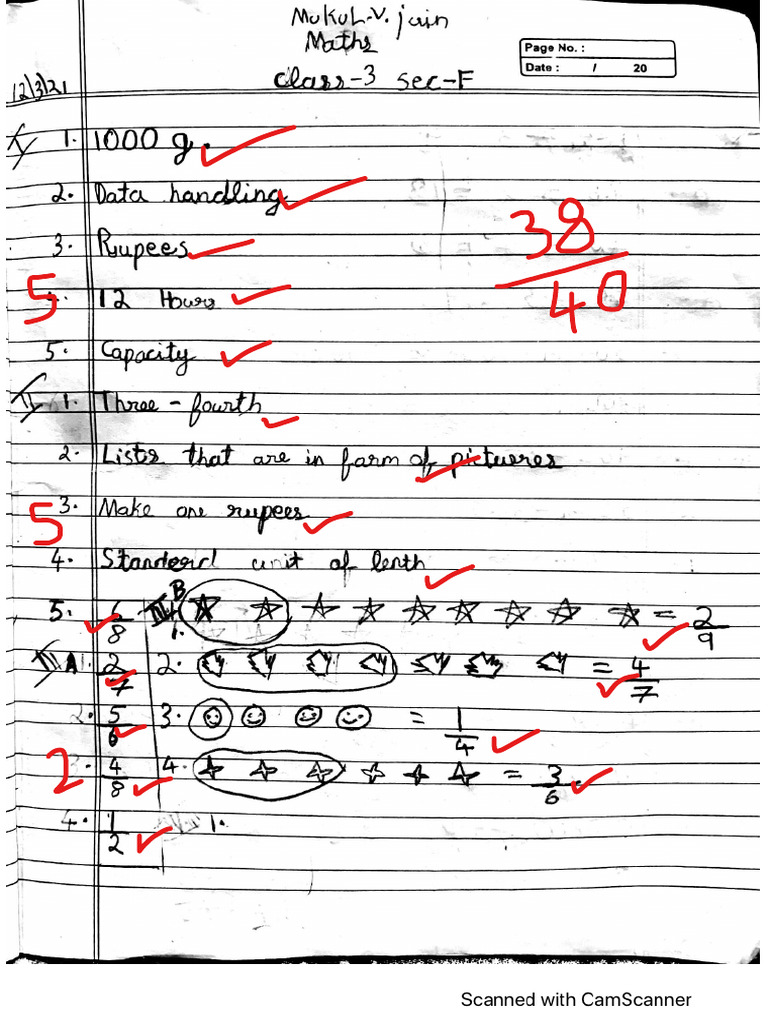 Mukul.V. jain
Maths
Class-3 sec-F
Page No. :
Date : / 20
12/3/21
I 1. 1000 g.
2. Data handling
3. Rupees
38/40
5
4. 12 Hours
5. Capacity
II 1. Three - fourth
2. Lists that are in farm of pictures
3. Make one rupees
5
4. Standerd unit of lenth
5. 6/8 III B 1. = 2/9
III A 1. 2/7 2. = 4/7
2. 5/6 3. = 1/4
2
3. 4/8 4. = 3/6
4. 1/2 1.
Scanned with CamScanner